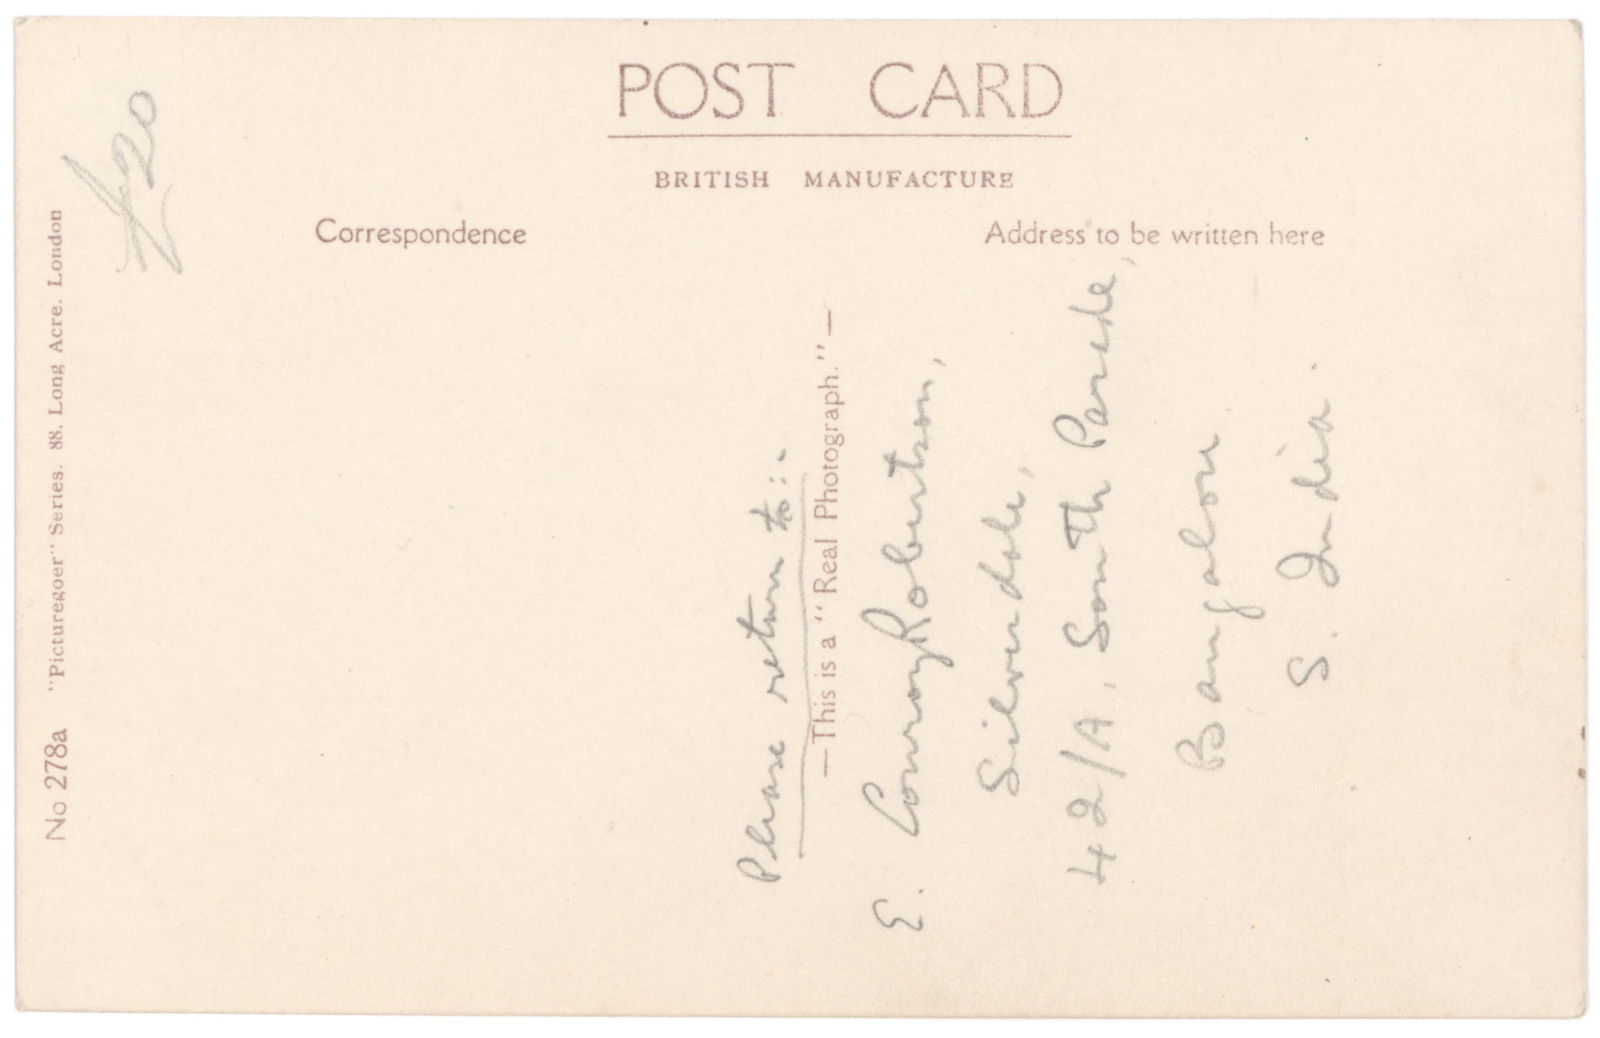 POST CARD
BRITISH MANUFACTURE
Correspondence
Address to be written here
No 278a "Picturegoer" Series. 88. Long Acre. London
£20
—This is a "Real Photograph."—
Please return to:-
E. Conroy Robertson,
Silverdale,
42/A, South Parade,
Bangalore
S. India.